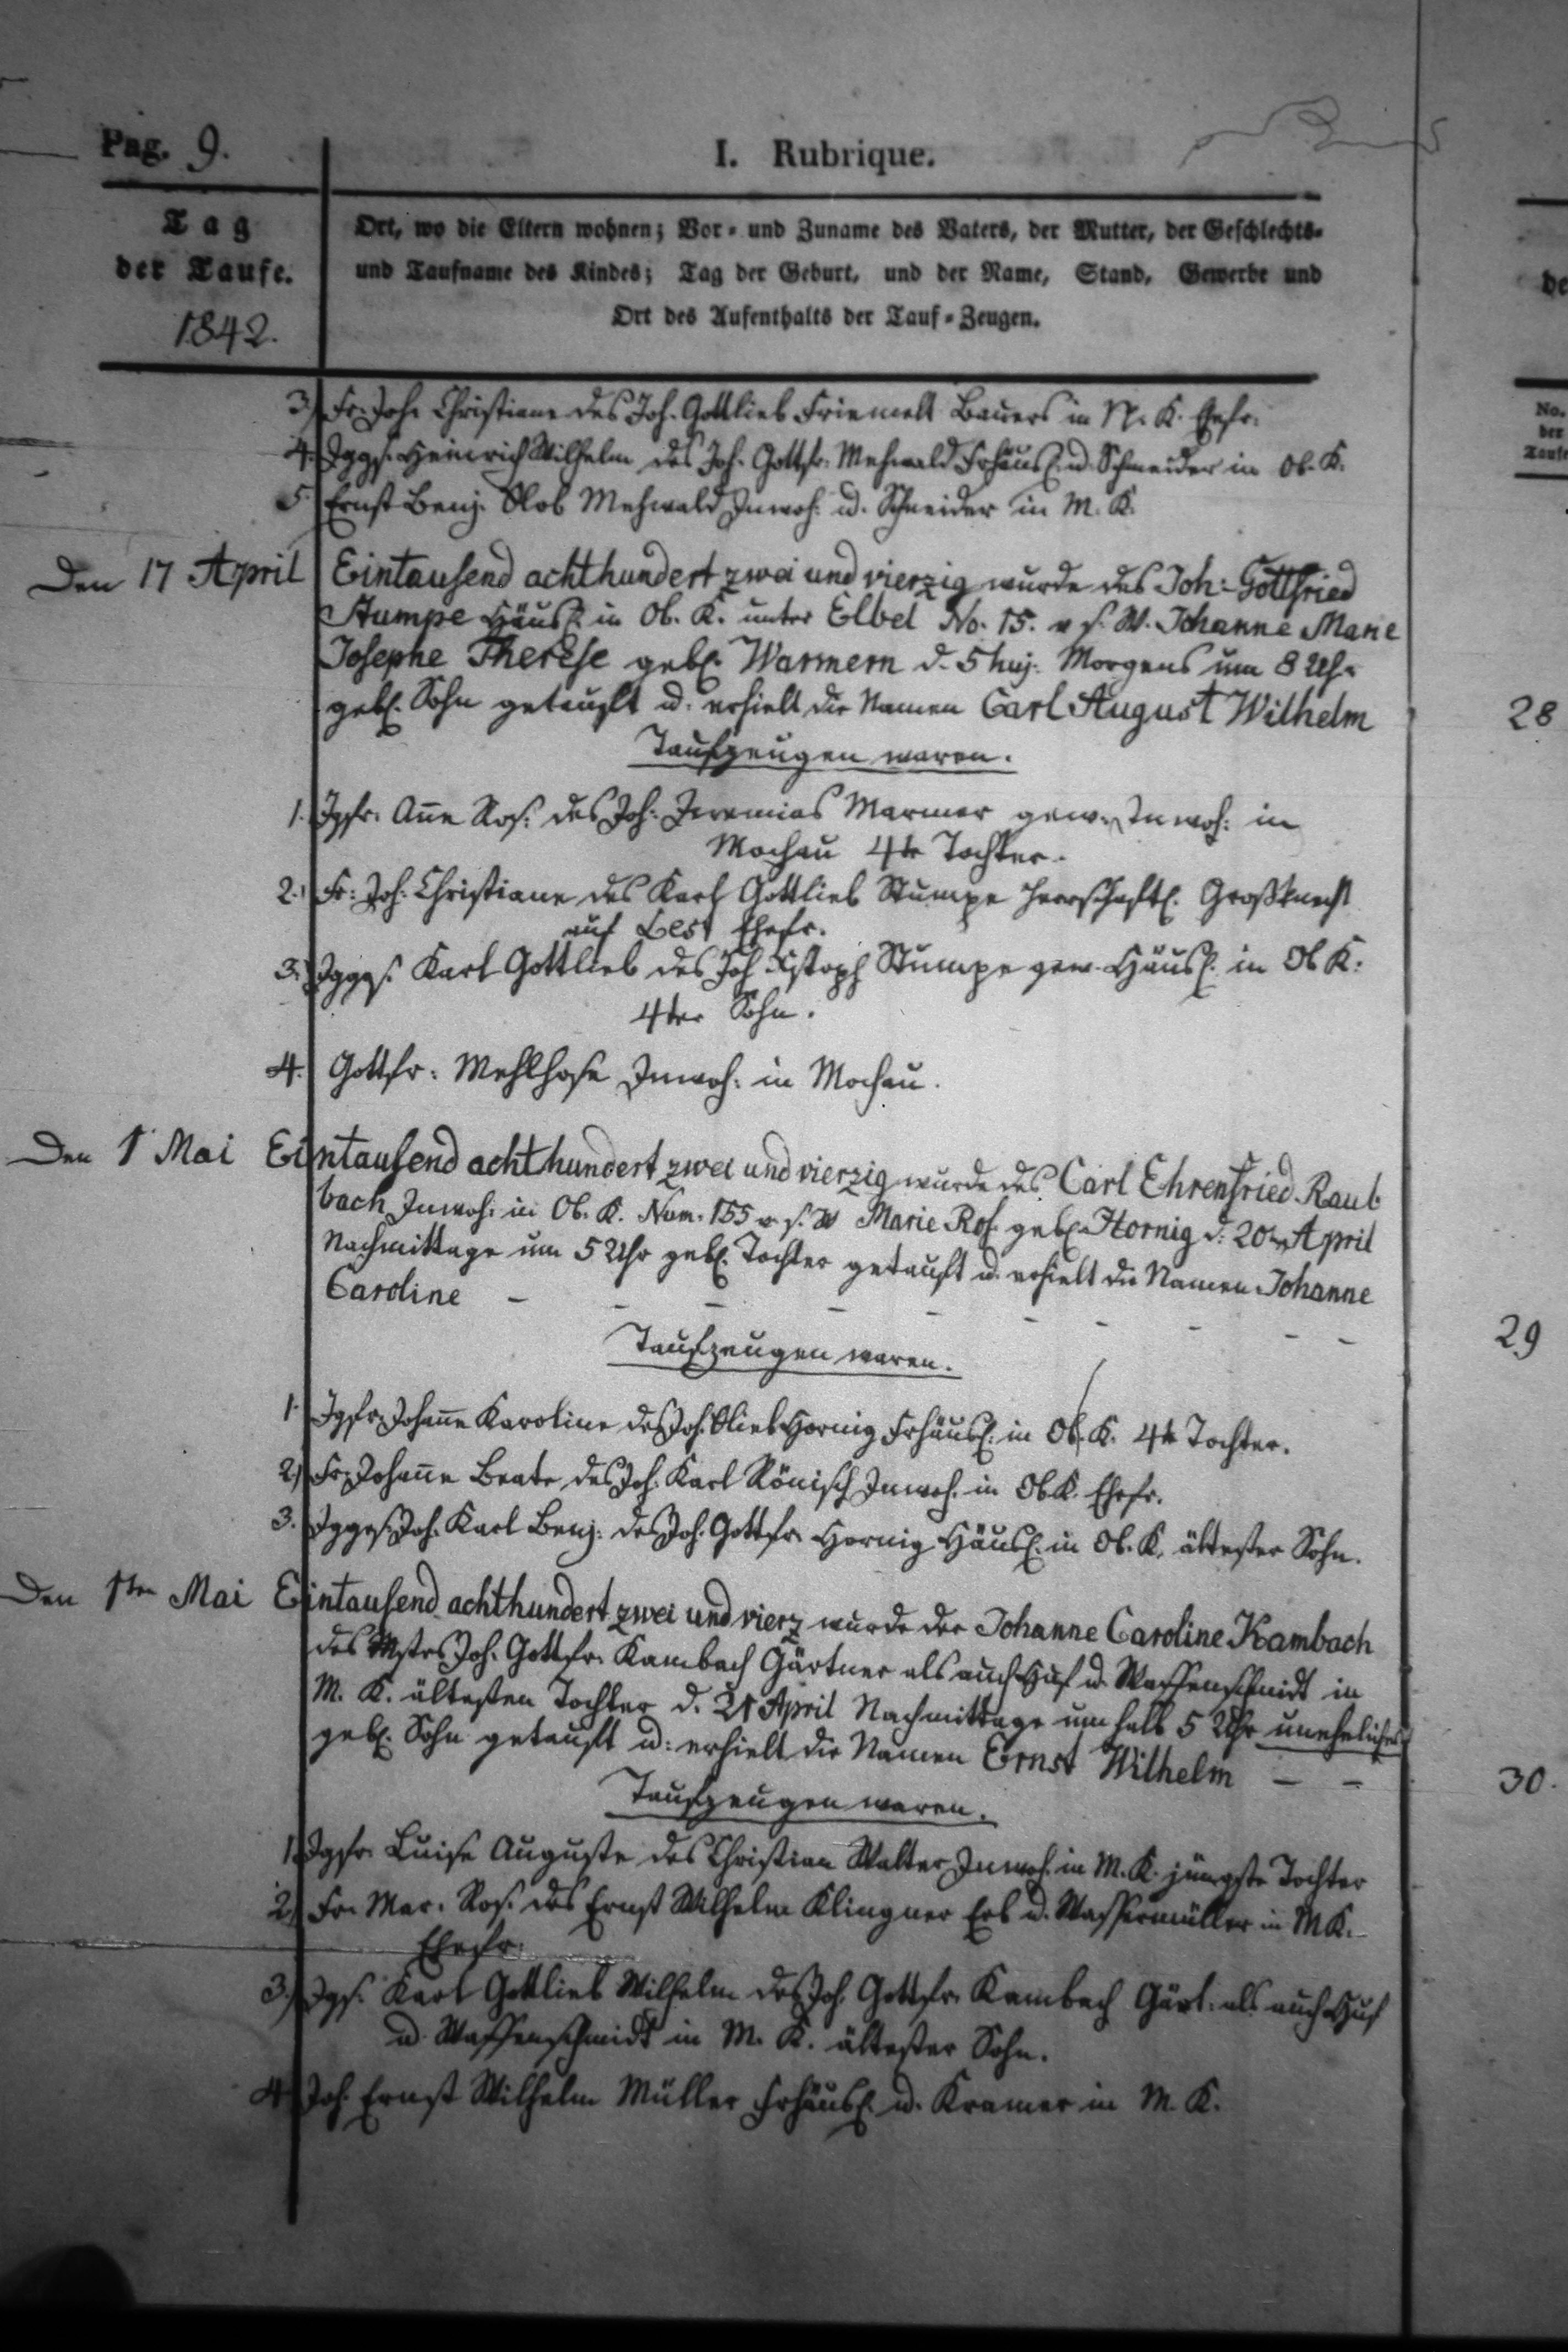 Pag. 9.
I. Rubrique.
Tag
der Taufe.
1842.
Ort, wo die Eltern wohnen; Vor- und Zuname des Vaters, der Mutter, der Geschlechts-
und Taufname des Kindes; Tag der Geburt, und der Name, Stand, Gewerbe und
Ort des Aufenthalts der Tauf-Zeugen.
3.) Fr. Joh. Christiane des Joh. Gottlieb Friemelt Bauers in N. K. Ehefr.
4. Jggs. Heinrich Wilhelm des Joh. Gottfr. Mehwald Frhäusl. u. Schneider in Ob. K.
5. Ernst Benj. Mehwald Inwoh: u. Schneider in M. K.
Den 17 April Eintausend achthundert zwei und vierzig wurde des Joh: Gottfried
Stumpe Häusl: in Ob. K. unter Elbel No. 15. v. s. W. Johanne Marie
Josephe Therese geb. Warmern d. 5 huj: Morgens um 8 Uhr
geb. Sohn getauft u. erhielt die Namen Carl August Wilhelm
28
Taufzeugen waren.
1. Jgfr. Anne Ros: des Joh: Jeremias Warmer gew. Inwoh: in
Mochau 4te Tochter.
2.) Fr: Joh: Christiane des Karl Gottlieb Stumpe herrschaftl. Großknecht
auf Ehefr.
3.) Jggs. Karl Gottlieb des Joh Xstoph Stumpe gew. Häusl. in Ob K.
4ter Sohn.
4. Gottfr: Mehlhose Inwoh: in Mochau.
Den 1 Mai Eintausend achthundert zwei und vierzig wurde des Carl Ehrenfried Raub
bach Inwoh: in Ob. K. Nom. 155 v. s. W Marie Ros. geb. Hornig d: 20ten April
Nachmittage um 5 Uhr geb. Tochter getauft u. erhielt die Namen Johanne
Caroline - - - - - - - - -
29
Taufzeugen waren.
1. Jgfr. Johanne Karoline des Joh. Glieb Hornig Frhäusl. in Ob. K. 4te Tochter.
2.) Fr. Johanne Beate des Joh. Karl Rönisch Inwoh. in Ob K. Ehefr.
3. Jggs. Joh. Karl Benj. des Joh. Gottfr. Hornig Häusl. in Ob. K. ältester Sohn.
Den 1ten Mai Eintausend achthundert zwei und vierz wurde der Johanne Caroline Kambach
des Mstrs Joh. Gottfr. Kambach Gärtner als auch Huf u. Waffenschmidt in
M. K. ältesten Tochter d. 21 April Nachmittage um halb 5 Uhr unehelicher
geb. Sohn getauft u: erhielt die Namen Ernst Wilhelm - -
30.
Taufzeugen waren.
1. Jgfr. Luise Auguste des Christian Walter Inwoh. in M. K. jüngste Tochter
2.) Fr. Mar. Ros. des Ernst Wilhelm Klingner Erb u. Wassermüller in M K.
Ehefr.
3.) Jgs. Karl Gottlieb Wilhelm des Joh. Gottfr. Kambach Gärt. als auch Huf
u. Waffenschmidt in M. K. ältester Sohn.
4. Joh. Ernst Wilhelm Müller Frhäusl. u. Kramer in M. K.